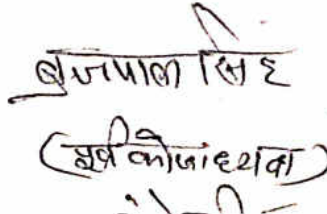 बृजपाल सिंह
(पूर्व कोषाध्यक्ष)